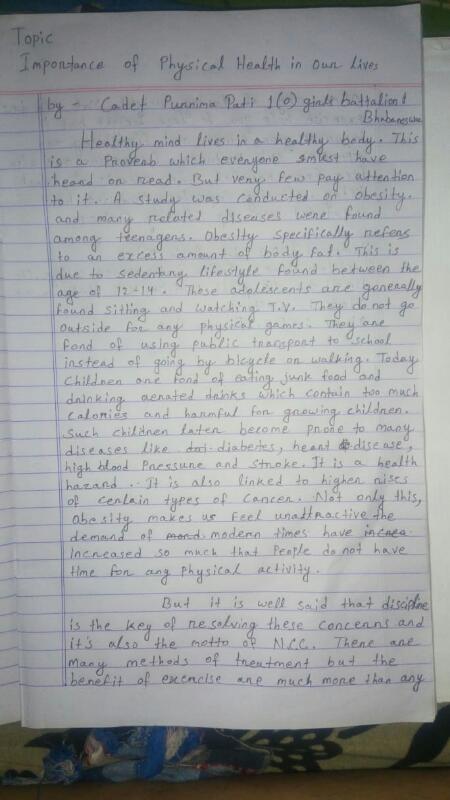 Topic
Importance of Physical Health in Our Lives
by - Cadet Purnima Pati 1(o) girls battalion
Bhubaneswar
Healthy mind lives in a healthy body. This
is a Proverb which everyone must have
heard or read. But very few pay attention
to it. A study was conducted on obesity.
and many related diseases were found
among teenagers. Obesity specifically refers
to an excess amount of body fat. This is
due to sedentary lifestyle found between the
age of 12-14. These adolescents are generally
found sitting and watching T.V. They do not go
outside for any physical games. They are
fond of using public transport to school
instead of going by bicycle or walking. Today
children are fond of eating junk food and
drinking aerated drinks which contain too much
calories and harmful for growing children.
Such children later become prone to many
diseases like diabetes, heart disease,
high blood Pressure and stroke. It is a health
hazard. It is also linked to higher rises
of certain types of cancer. Not only this,
obesity makes us feel unattractive the
demand of modern times have
increased so much that People do not have
time for any physical activity.
But it is well said that discipline
is the key of resolving these concerns and
it's also the motto of N.C.C. There are
many methods of treatment but the
benefit of exercise are much more than any